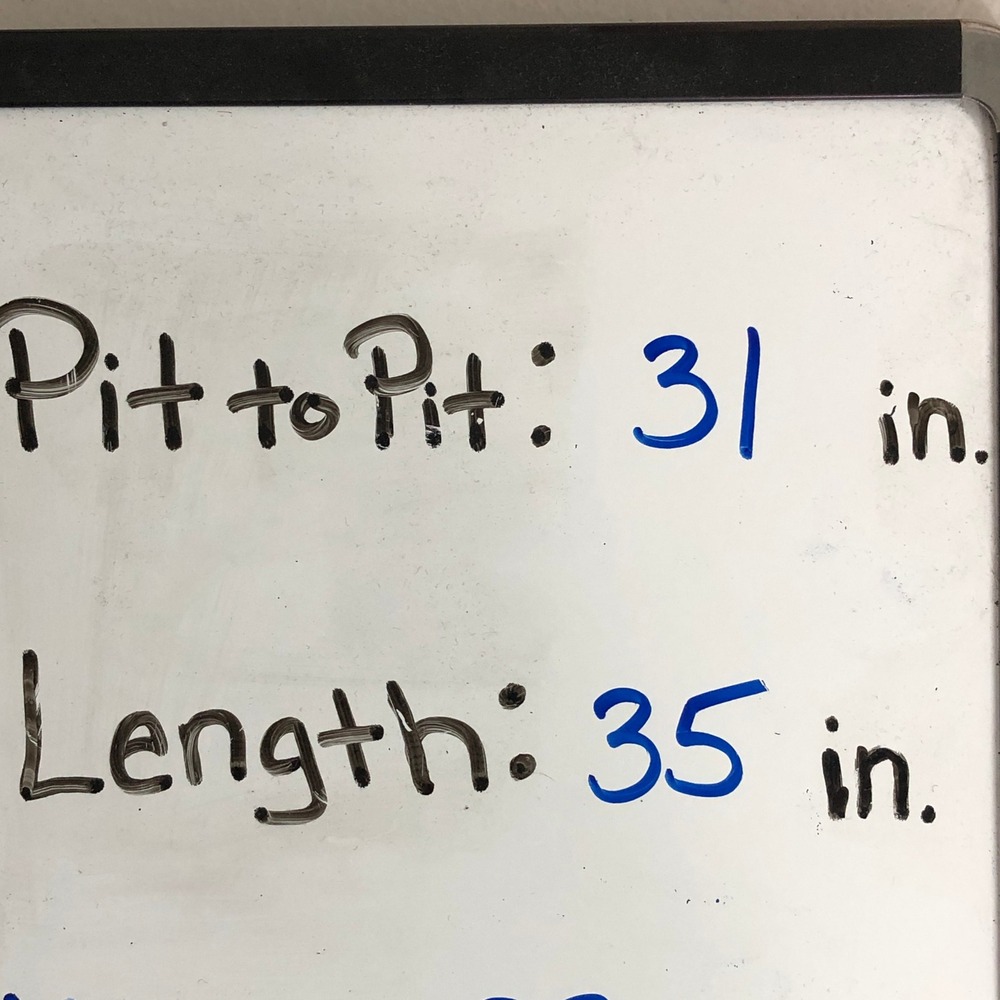 Pit to Pit: 31 in.
Length: 35 in.